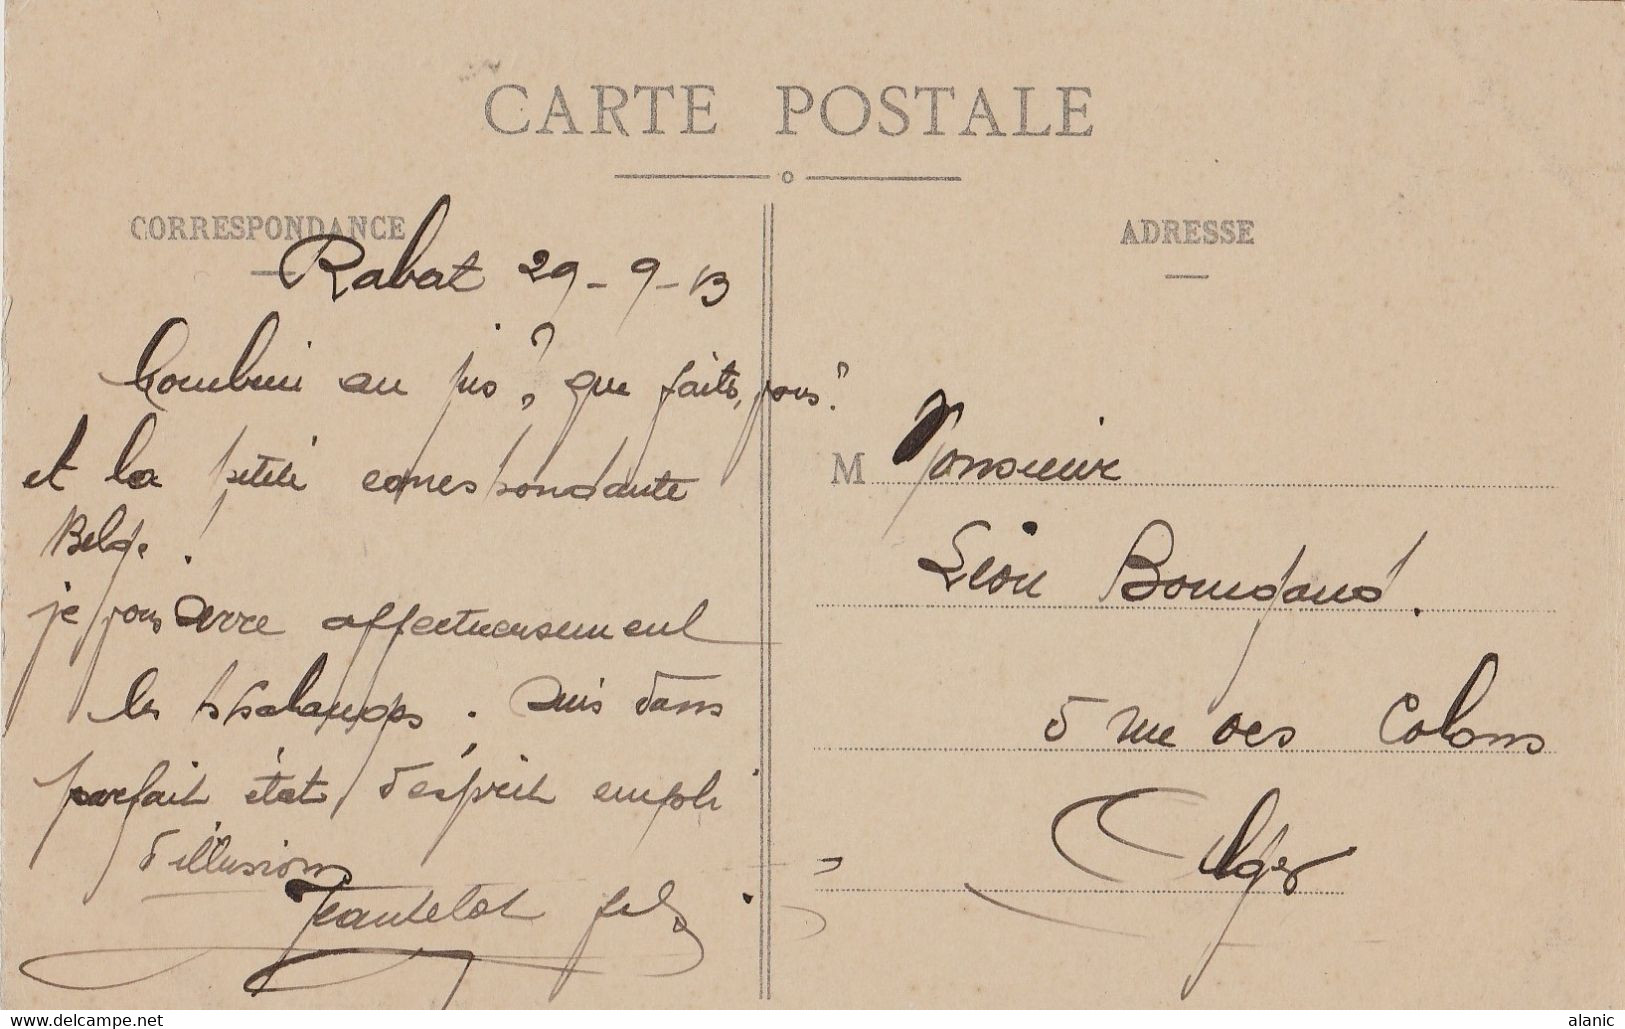 CARTE POSTALE
CORRESPONDANCE
Rabat 29-9-13
au pis, ? que faites, vous?
et la petite correspondante
Belge!
je vous serre affectueusement
les . Suis dans
parfait état d'esprit empli
d'illusions
Jeantelot fils
ADRESSE
M Monsieur
Léon Bourgaud.
5 rue des Colons
Alger
www.delcampe.net
alanic